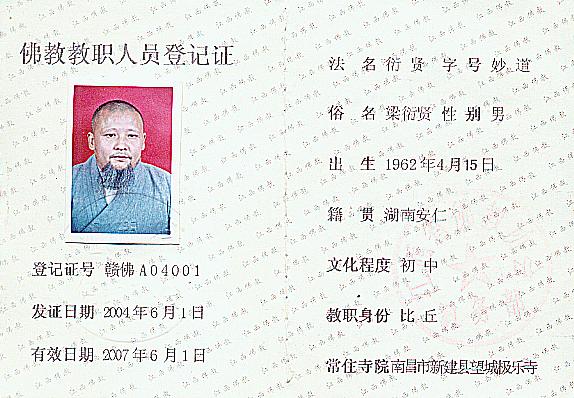 佛教教职人员登记证
登记证号 赣佛A04001
发证日期 2004年6月1日
有效日期 2007年6月1日
法 名 衍 贤 字 号 妙 道
俗 名 梁衍贤 性 别 男
出 生 1962年4月15日
籍 贯 湖南安仁
文化程度 初 中
教职身份 比 丘
常住寺院 南昌市新建县望城极乐寺
江西佛教